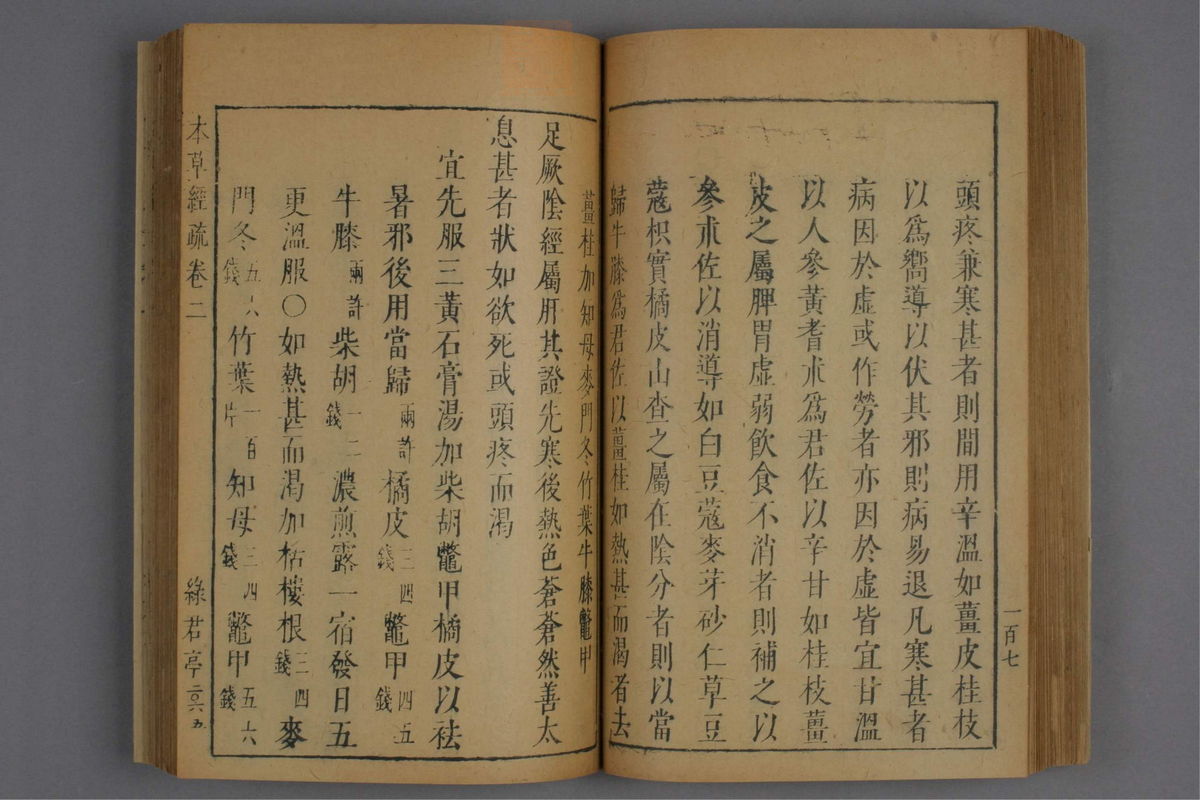 頭疼兼寒甚者則間用辛溫如薑皮桂枝
以爲嚮導以伏其邪則病易退凡寒甚者
病因於虛或作勞者亦因於虛皆宜甘溫
以人參黃耆朮爲君佐以辛甘如桂枝薑
皮之屬脾胃虛弱飲食不消者則補之以
參朮佐以消導如白豆蔻麥芽砂仁草豆
蔻枳實橘皮山查之屬在陰分者則以當
歸牛膝爲君佐以薑桂如熱甚而渴者去
一百七
薑桂加知母麥門冬竹葉牛膝鼈甲
足厥陰經屬肝其證先寒後熱色蒼蒼然善太
息甚者狀如欲死或頭疼而渴
宜先服三黃石膏湯加柴胡鼈甲橘皮以祛
暑邪後用當歸兩許橘皮三四錢鼈甲四五錢
牛膝兩許柴胡一二錢濃煎露一宿發日五
更溫服○如熱甚而渴加栝樓根三四錢麥
門冬五六錢竹葉一百片知母三四錢鼈甲五六錢
本草經疏卷二
綠君亭